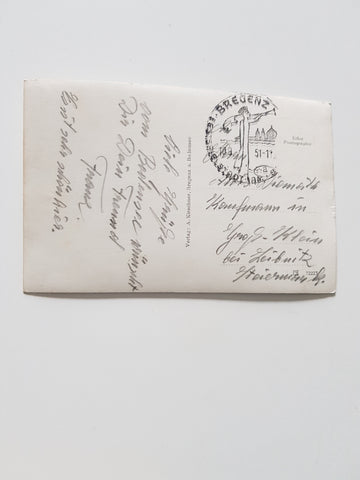 Viele Grüße
vom Bodensee wünscht
Dir Dein Freund
Franz.
Ist sehr schön hier.
Verlag: A. Kirschner, Bregenz a. Bodensee
BREGENZ 1
51-1
Echte
Photographie
Kaufmann in
Groß-Klein
bei Leibnitz
Steiermark.